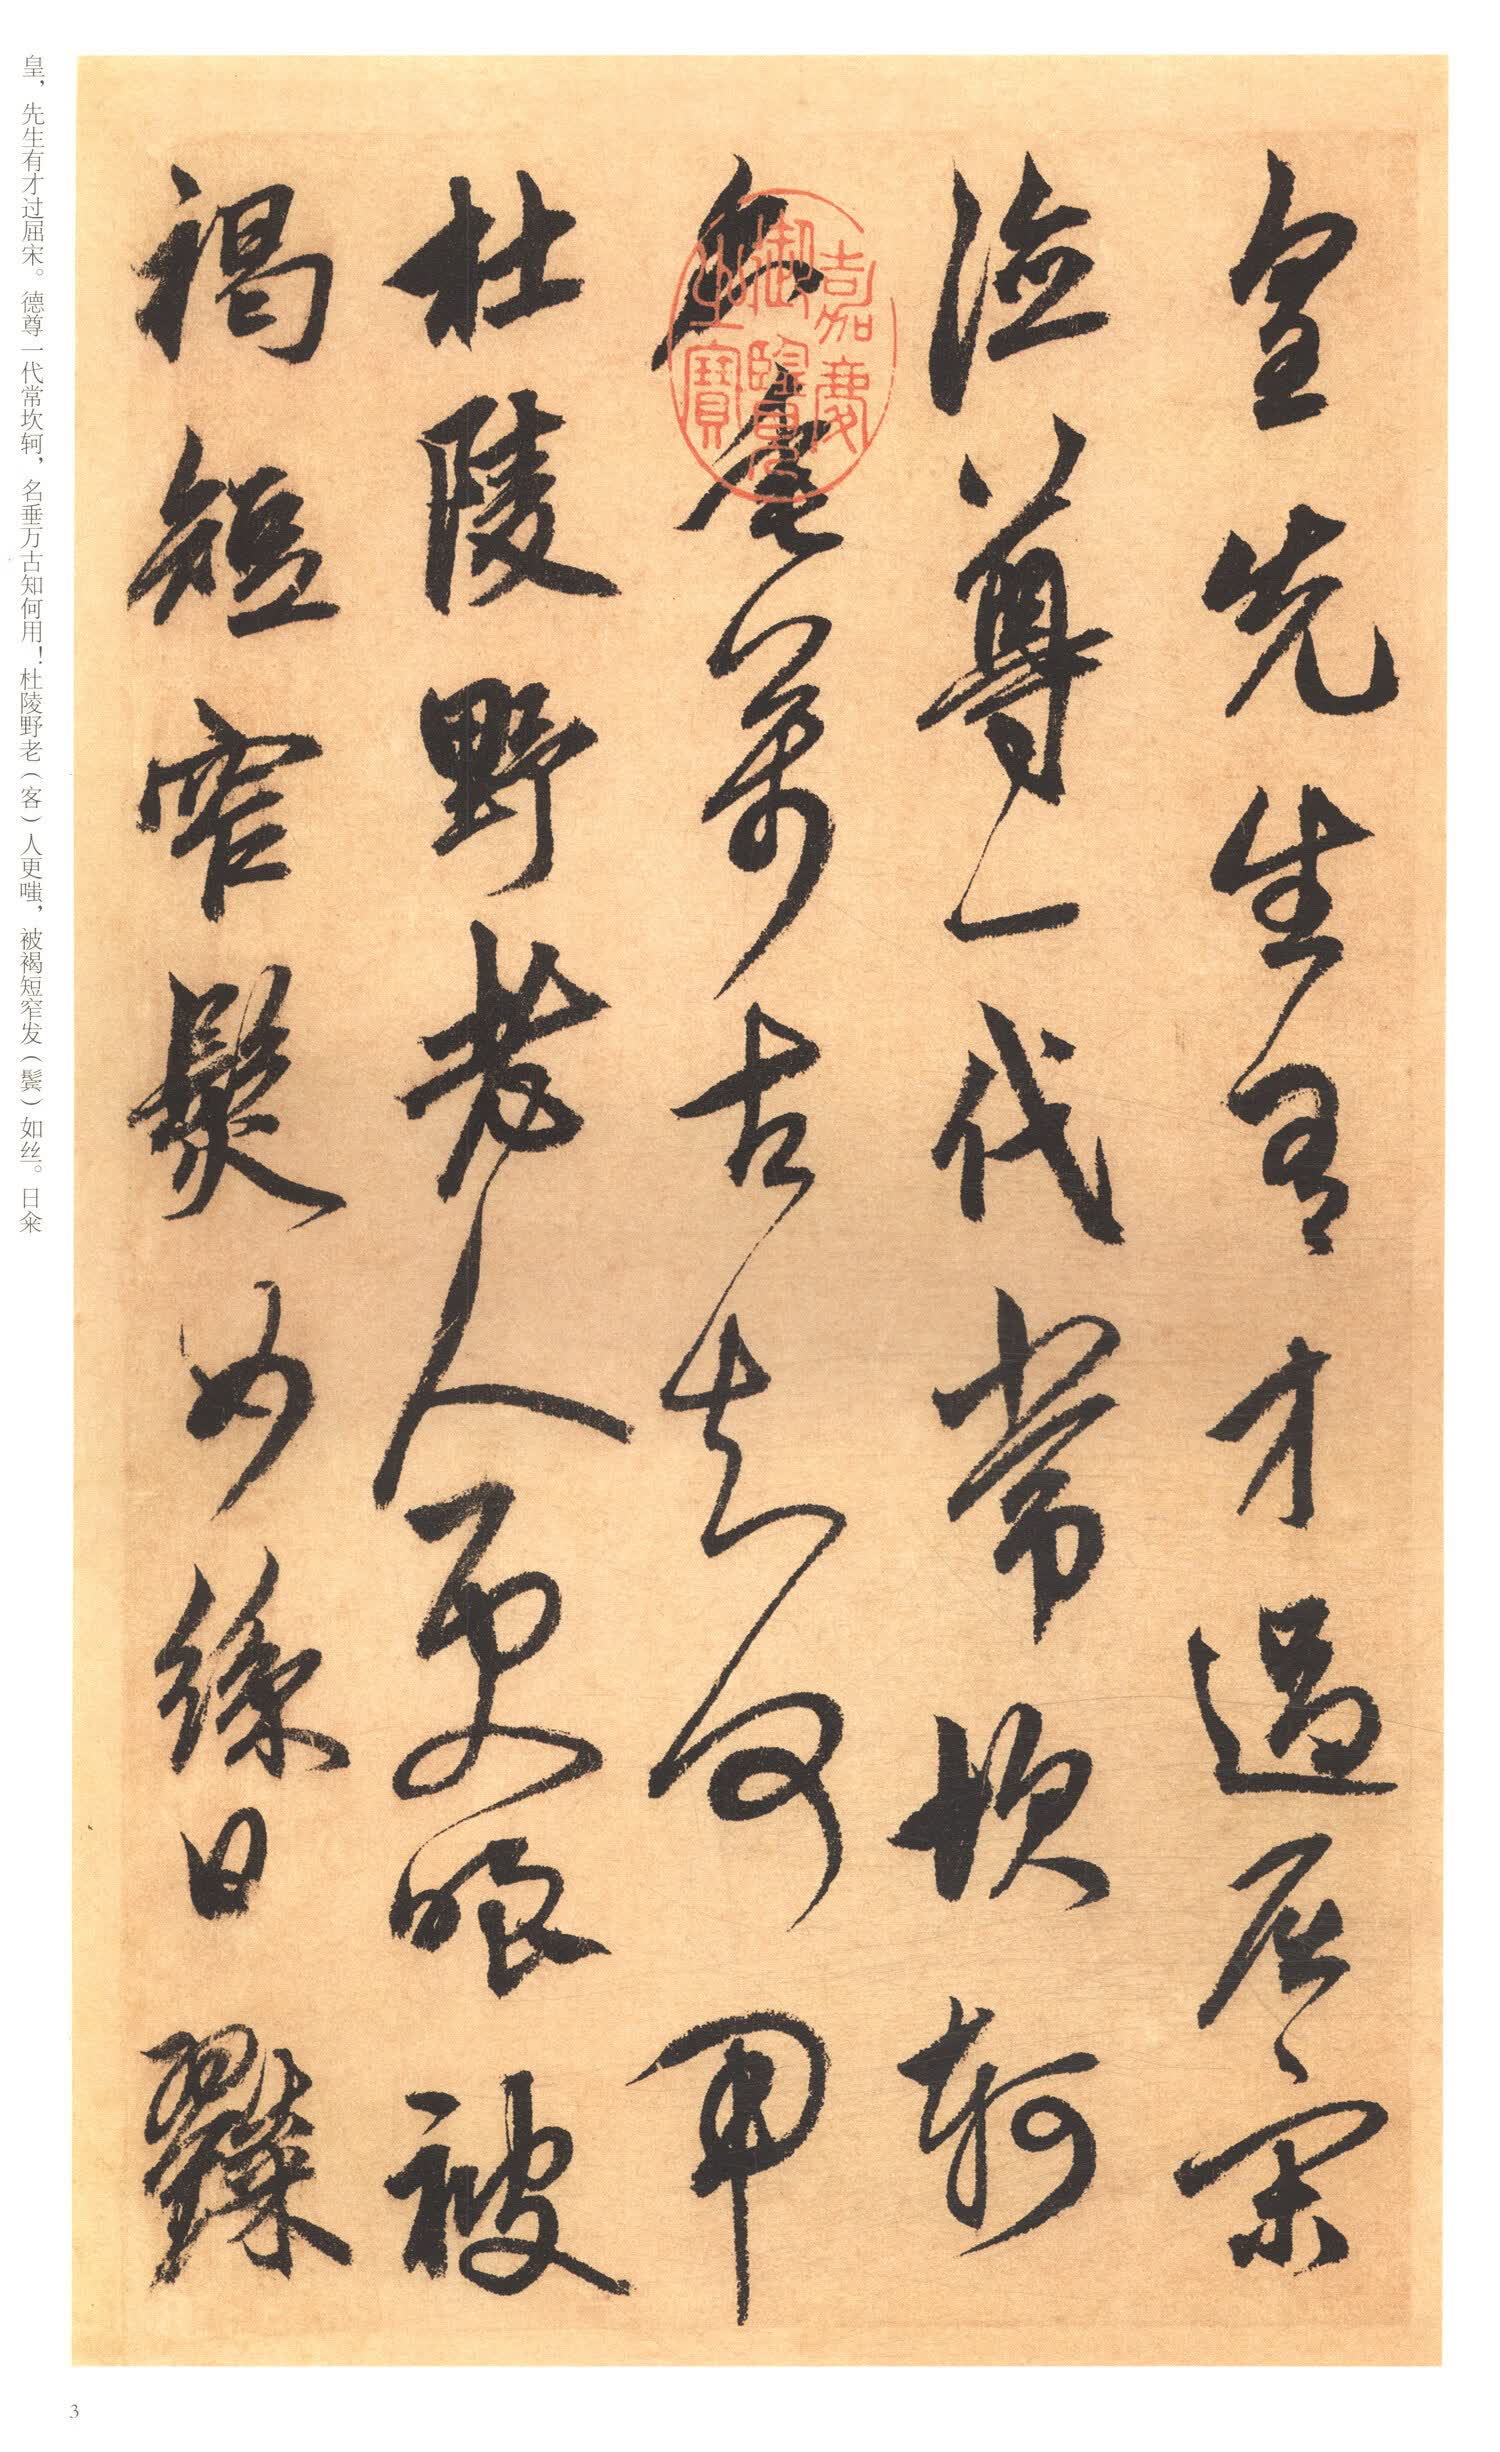 皇先生有才過屈宋
德尊一代常坎軻
名垂萬古知何用
杜陵野老人更嗤被
褐短窄髮如絲日糴
嘉慶御覽之寶
皇，先生有才过屈宋。德尊一代常坎轲，名垂万古知何用！杜陵野老（客）人更嗤，被褐短窄发（鬓）如丝。日籴
3